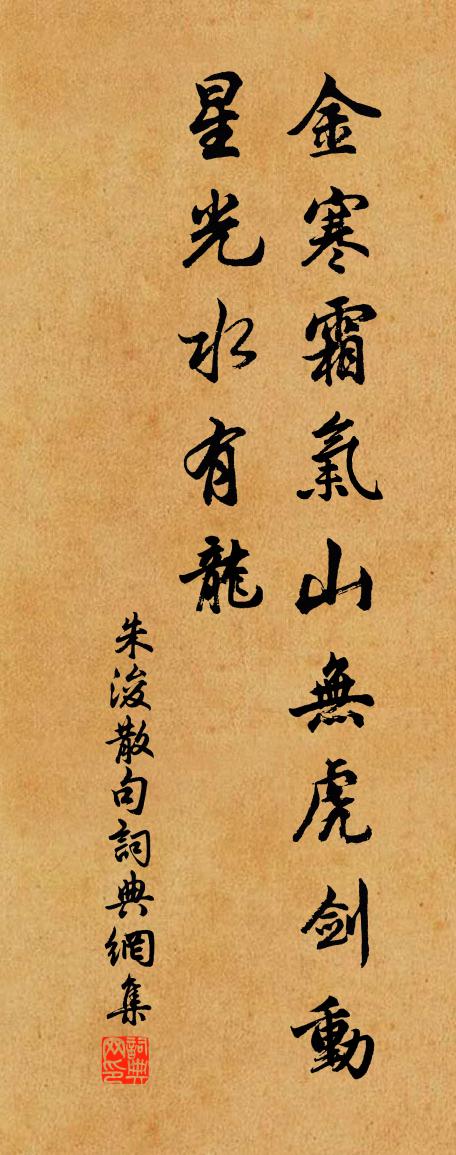 金寒霜氣山無虎劍動
星光水有龍
朱浚散句詞典網集
詞典
网印